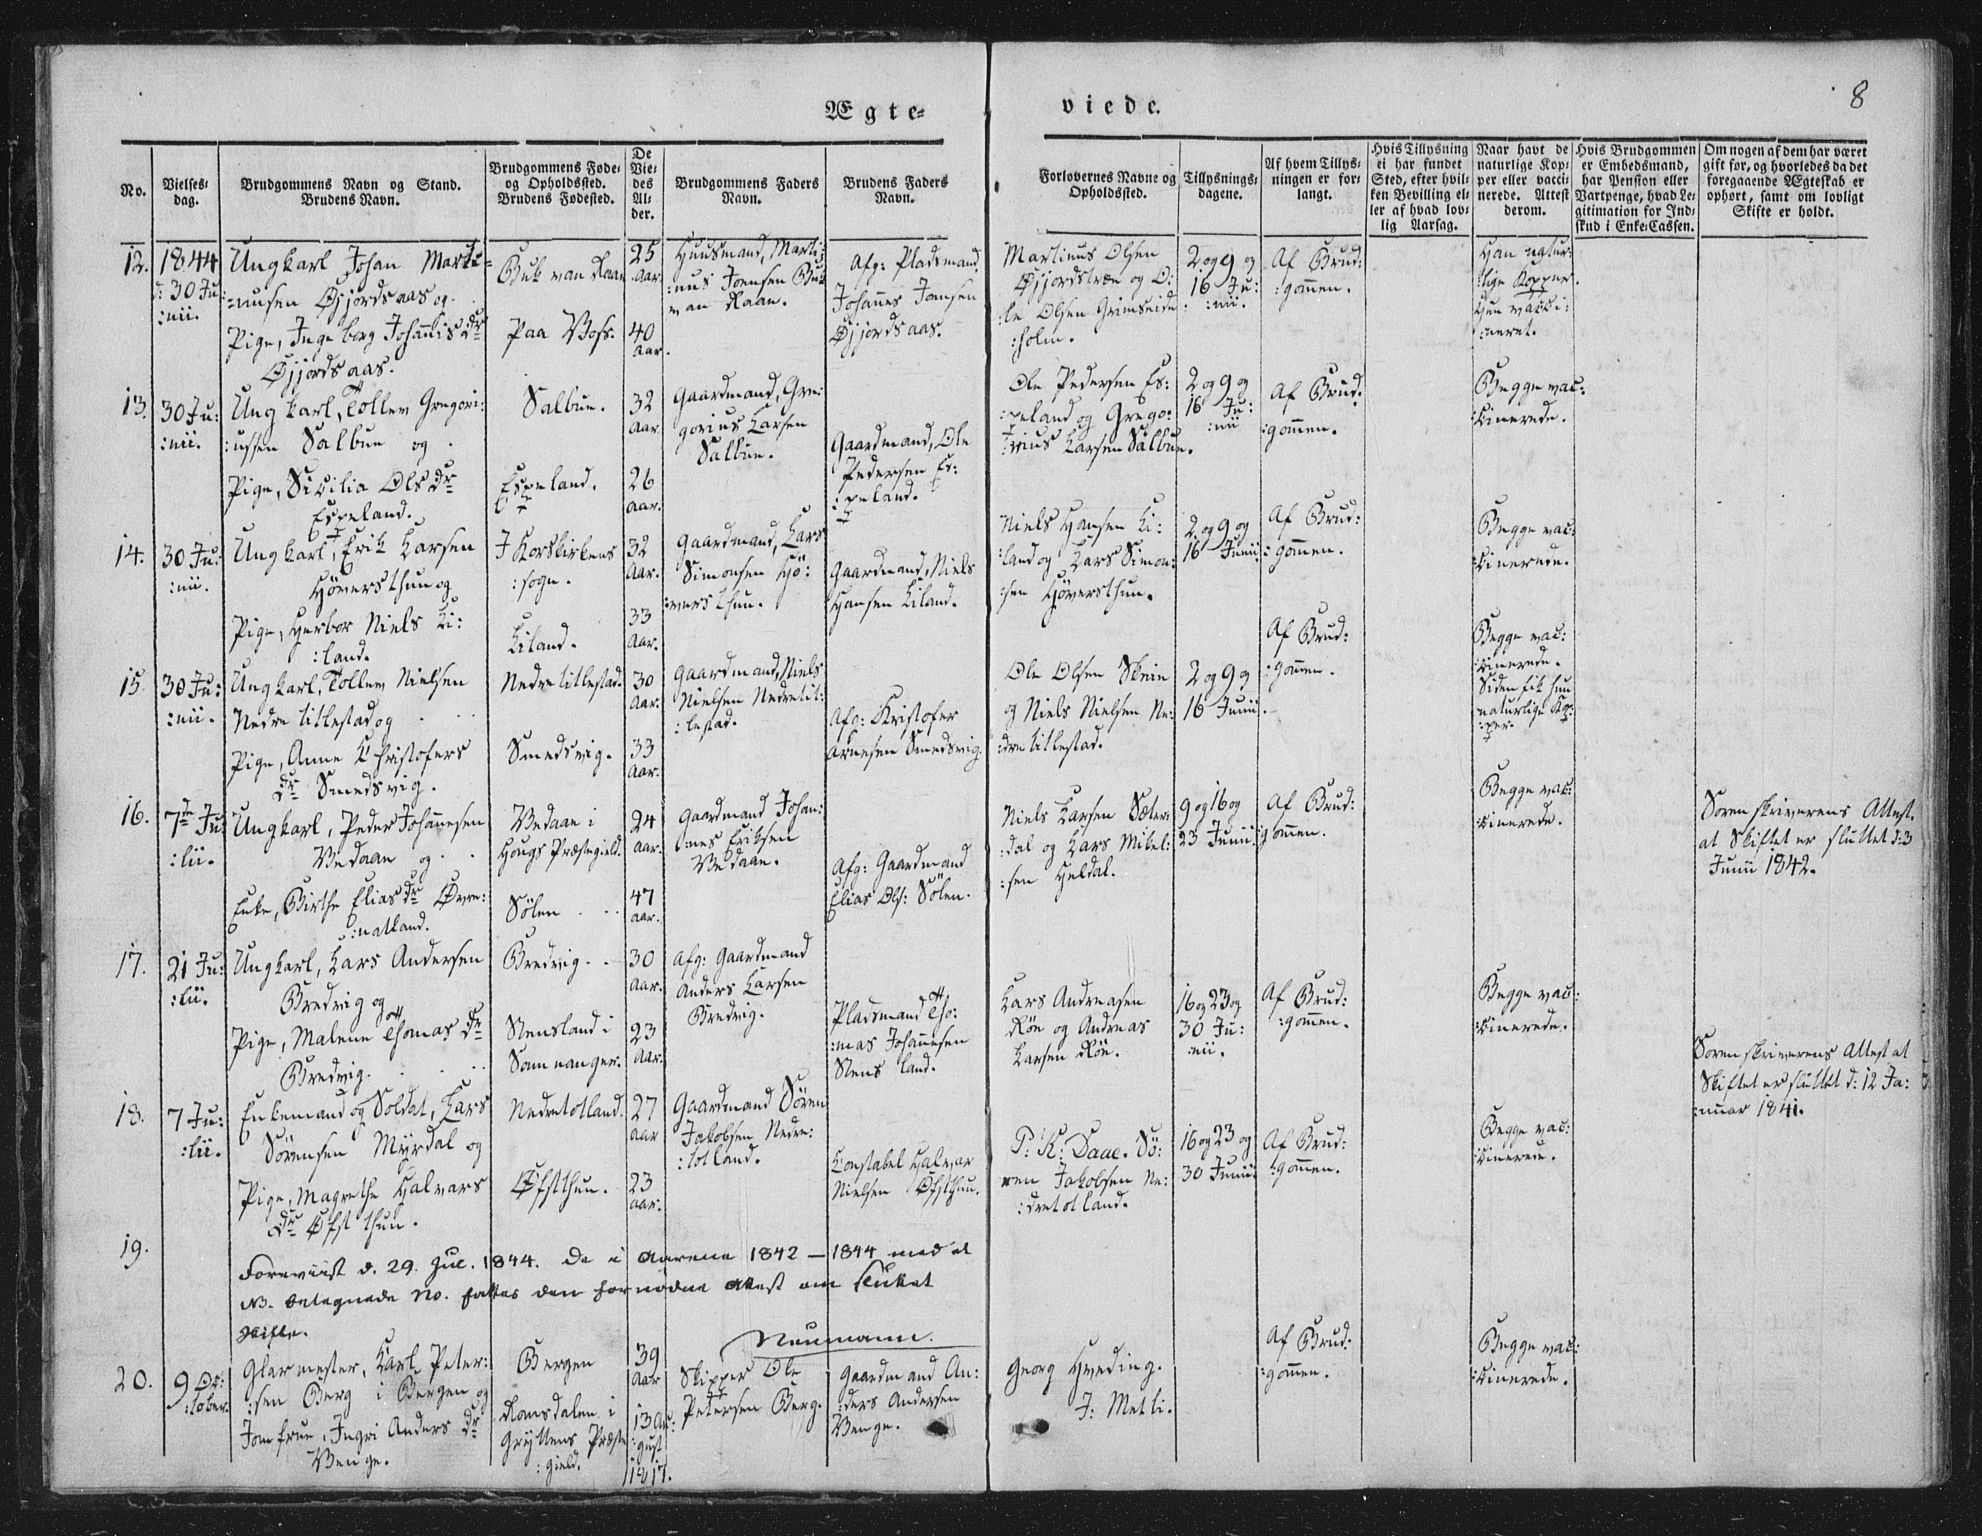 Ægte-
viede.
8
No.
Vielses-
dag.
Brudgommens Navn og Stand.
Brudens Navn.
Brudgommens Føde-
og Opholdssted.
Brudens Fødested.
De
Vie-
des
Al-
der.
Brudgommens Faders
Navn.
Brudens Faders
Navn.
Forlovernes Navne og
Opholdssted.
Tillysnings-
dagene.
Af hvem Tillys-
ningen er for-
langt.
Hvis Tillysning
ei har fundet
Sted, efter hvil-
ken Bevilling el-
ler af hvad lov-
lig Aarsag.
Naar havt de
naturlige Kop-
per eller vacci-
nerede. Attest
derom.
Hvis Brudgommen
er Embedsmand,
har Pension eller
Vartpenge, hvad Le-
gitimation for Ind-
skud i Enke-Cassen.
Om nogen af dem har været
gift før, og hvorledes da det
foregaaende Ægteskab er
ophørt, samt om lovligt
Skifte er holdt.
12.
1844
d: 30 Ju:
:nii.
Ungkarl Johan Marti-
:nusen Øjjordsaas og
Pige, Ingeborg Johannis dr
Øjjordsaas.
Paa Voss.
25
Aar.
40
Aar.
Huusmand, Marti:
:nus Joensen
Afg: Pladsmand
Johannes Joensen
Øjjordsaas.
Martinus Olsen
Øjjordstræe og O:
:le Olsen Grimseid
:holm.
2 og 9 og
16 Ju:
:nii.
Af Brud:
:gommen.
Han natur:
:lige Kopper.
Hun vacci:
:neret.
13.
30 Ju:
:nii.
Ungkarl, Tollev Gregori:
:ussen Salbue og
Pige, Sicilia Ols dr
Espeland.
Salbue.
Espeland.
32
Aar.
26
Aar.
Gaardmand, Gre:
gorius Larsen
Salbue.
Gaardmand, Ole
Pedersen Es:
:peland.
Ole Pedersen Es:
:peland og Grego:
:rius Larsen Salbue.
2 og 9 og
16 Ju:
:nii
Af Brud:
:gommen.
Begge vac:
:cinerede.
14.
30 Ju:
:nii.
Ungkarl, Erik Larsen
Høversthun og
Pige, Herbor Niels Li:
:land.
I Korskirkens
:sogn.
Liland.
32
Aar.
33
Aar.
Gaardmand, Lars
Simonsen Hø:
:versthun.
Gaardmand, Niels
Hansen Liland.
Niels Hansen Li:
:land og Lars Simon:
:sen Høversthun.
2 og 9 og
16 Junii
Af Brud:
:gommen.
Begge vac:
:cinerede.
15.
30 Ju:
:nii.
Ungkarl, Tollev Nielsen
Nedre titlestad og
Pige, Anne Christofers
dr Smedsvig.
Nedre titlestad.
Smedsvig.
30
Aar.
33
Aar.
Gaardmand, Niels
Nielsen Nedre tit:
:lestad.
Afg: Kristofer
Arnesen Smedsvig.
Ole Olsen Skeie
og Niels Nielsen Ne:
:dre titlestad.
2 og 9 og
16 Junii.
Af Brud:
:gommen.
Begge vac:
:cinerede.
Siden fik hun
naturlige Kop:
:per.
16.
7de Ju:
:lii.
Ungkarl, Peder Johannesen
Vedaae og
Enke, Birthe Elias dr Øvre:
:natland.
Vedaae i
Hougs Præstegield.
Sølen
24
Aar.
47
Aar.
Gaardmand Johan:
:nes Eriksen
Vedaae.
Afg: Gaardmand
Elias Ols: Sølen.
Niels Larsen Sæter:
:dal og Lars Mikel:
:sen Heldal.
9 og 16 og
23 Junii.
Af Brud:
gommen.
Begge vac:
:cinerede.
Sorenskriverens Attest.
at Skiftet er sluttet d: 3
Junii 1842.
17.
21 Ju:
:lii.
Ungkarl, Lars Andersen
Bredvig og
Pige, Malene Thomas dr
Bredvig.
Bredvig.
Stensland i
Samnanger.
30
Aar.
23
Aar.
Afg: Gaardmand
Anders Larsen
Bredvig.
Pladsmand Tho:
:mas Johannesen
Stensland.
Lars Andreasen
Røe og Andreas
Larsen Røe.
16 og 23 og
30 Ju:
:nii.
Af Brud:
:gommen.
Begge vac:
:cinerede.
18.
7 Ju:
:lii.
Enkemand og Soldat, Lars
Sørensen Myrdal og
Pige, Magrethe Halvars
dr Øfstthun.
Nedretotland.
Øfstthun.
27
Aar
23
Aar.
Gaardmand Søren
Jakobsen Nedre:
:totland.
Constabel Halvar
Nielsen Øfstthun.
P: K: Daae. Sø:
ren Jakobsen Ne:
:dretotland.
16 og 23 og
30 Junii
Af Brud:
:gommen.
Begge vac:
:cinerede.
Sorenskriverens Attest at
Skiftet er sluttet d: 12 Ja:
:nuar 1841.
19.
Foreviist d. 29. Jul. 1844. De i Aarene 1842 – 1844 med et
NB. betegnede No. fattes den fornødne Attest om sluttet
Skifte.
Neumann.
20.
9 Oc:
:tober.
Glarmester, Karl Peter:
:sen Berg i Bergen og
Jomfrue, Ingri Anders dr
Venge.
Bergen
Romsdalen i
Gryttens Præste
:gield.
39
Aar
13 Au:
:gust
1817.
Skipper Ole
Petersen Berg.
Gaardmand An:
:ders Andersen
Venge.
Georg Hveding.
J: Metli.
Af Brud:
:gommen.
Begge vac:
:cinerede.